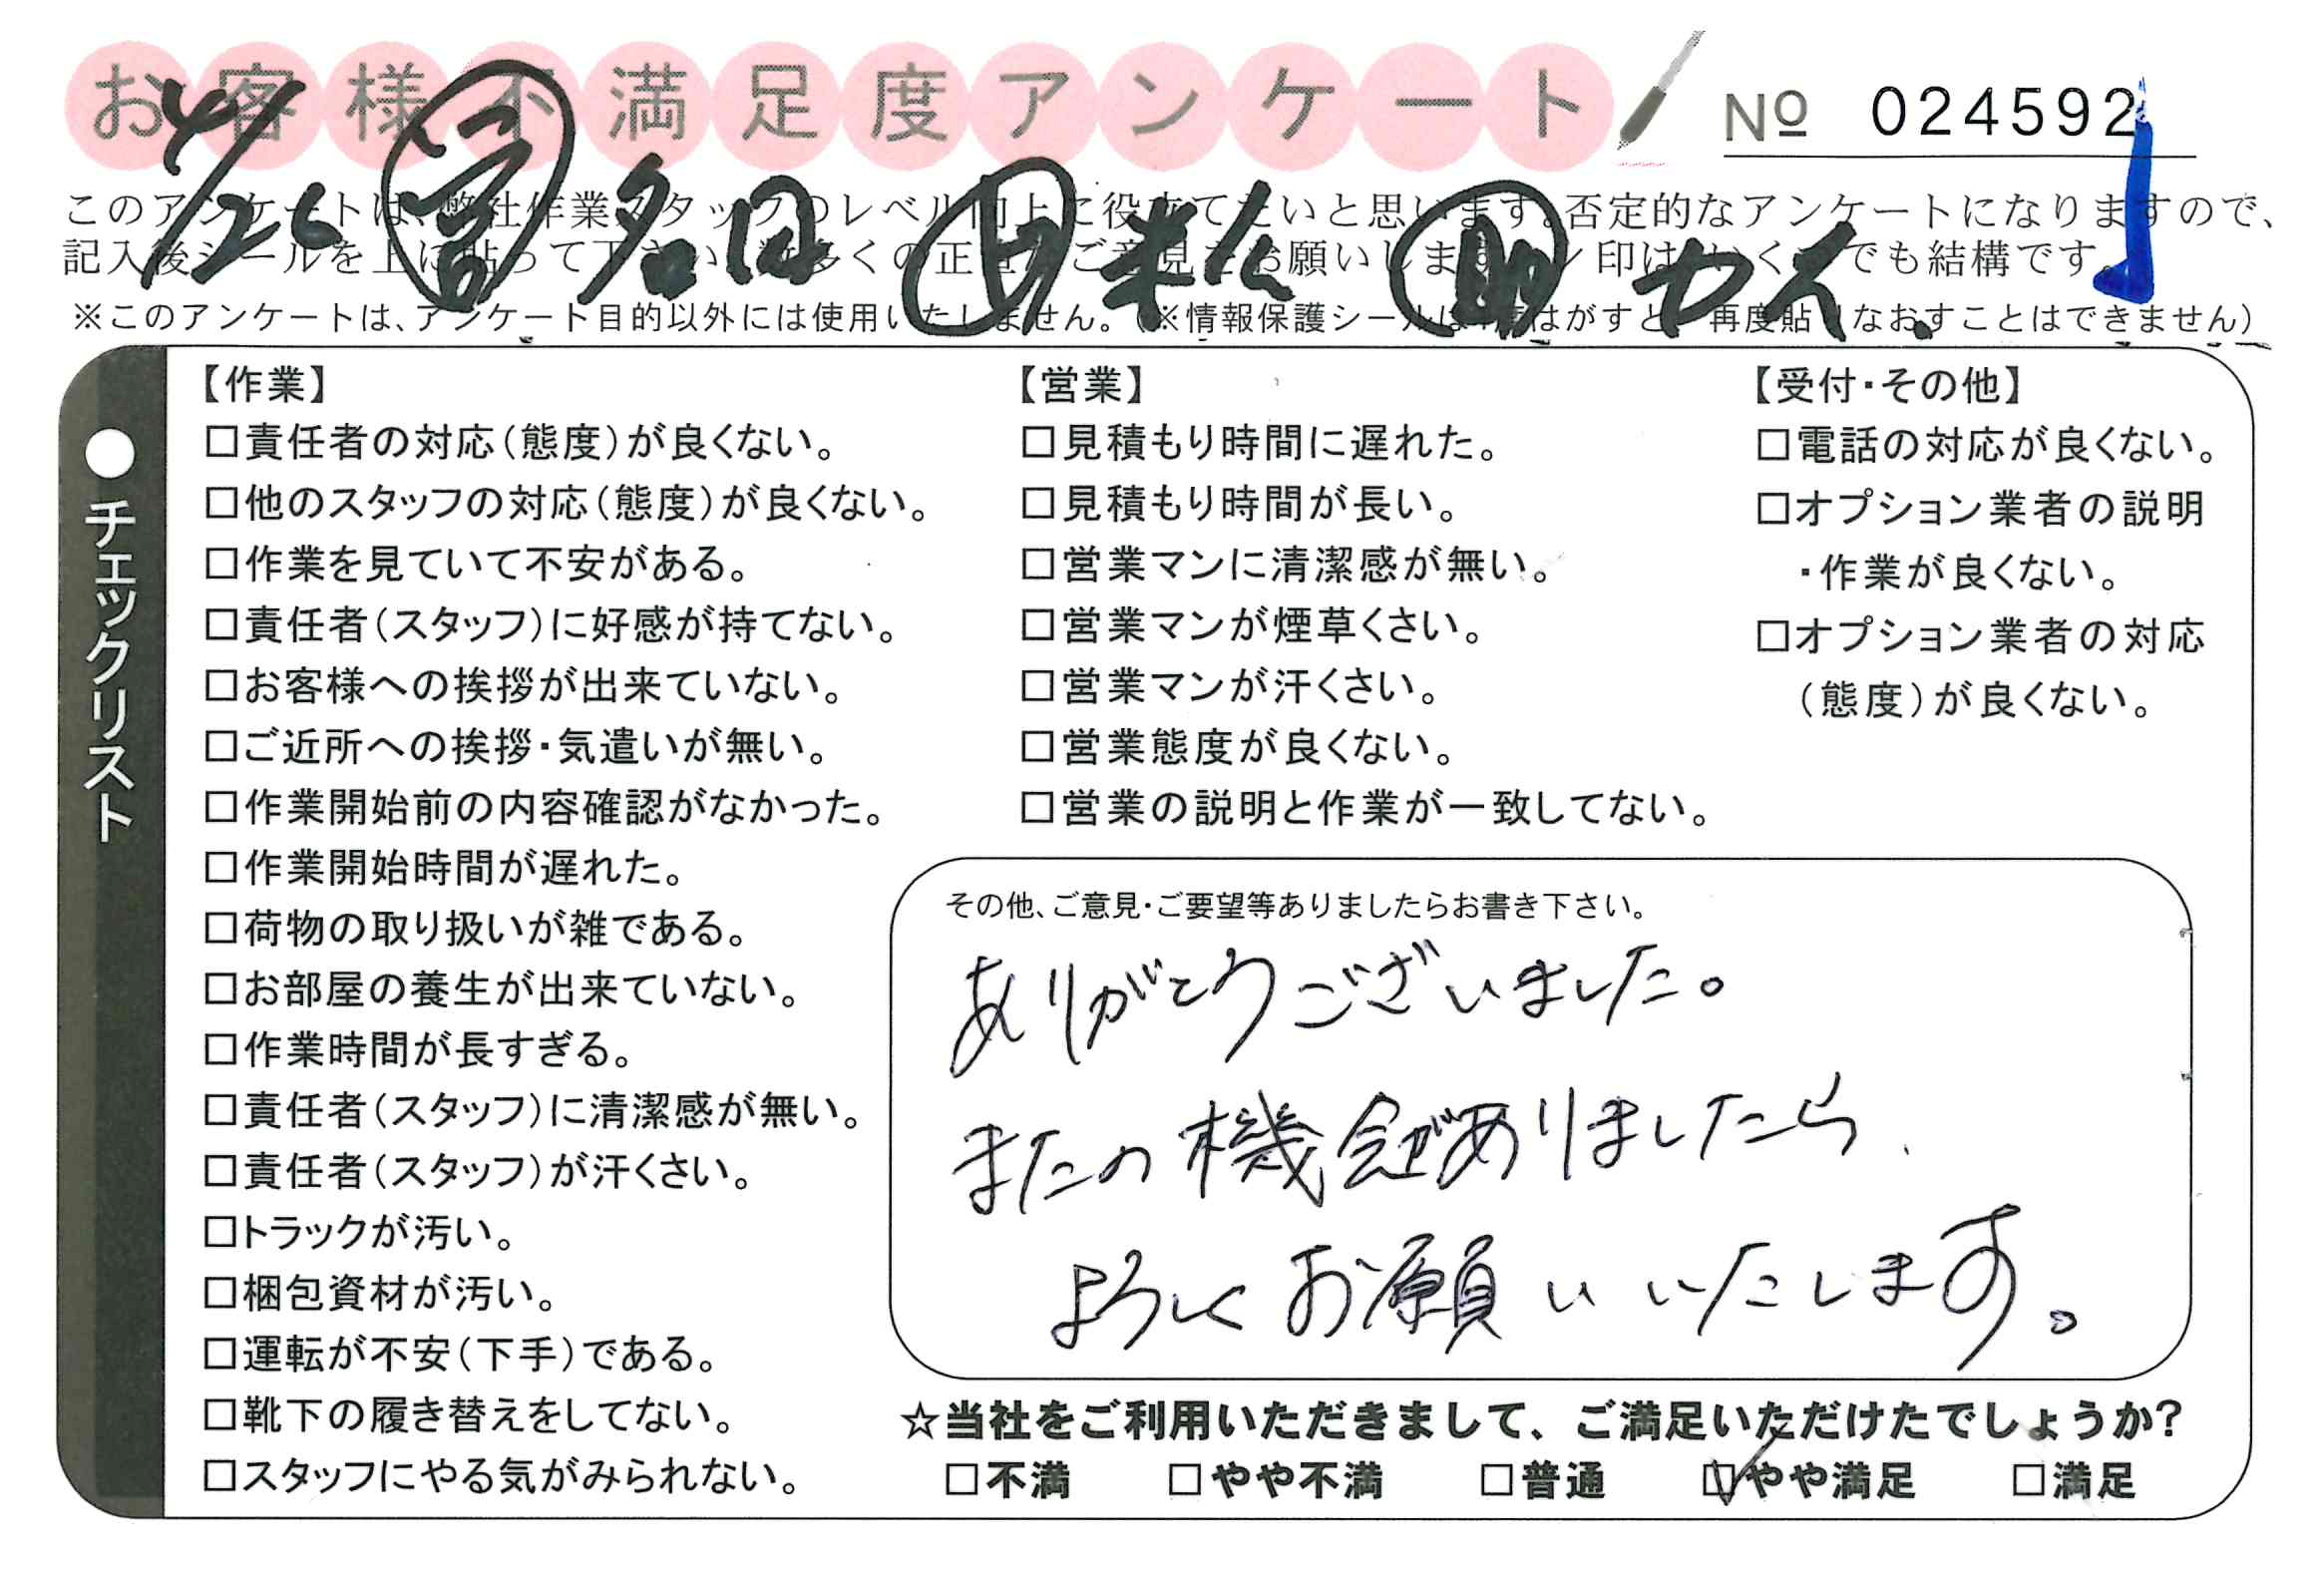 お客様不満足度アンケート
№ 024592
4/26
このアンケートは、弊社作業スタッフのレベル向上に役立てたいと思います。否定的なアンケートになりますので、
記入後シールを上に貼って下さい。数多くの正直なご意見をお願いします。レ印はいくつでも結構です。
※このアンケートは、アンケート目的以外には使用いたしません。（※情報保護シールは1度はがすと、再度貼りなおすことはできません）
●チェックリスト
【作業】
□責任者の対応（態度）が良くない。
□他のスタッフの対応（態度）が良くない。
□作業を見ていて不安がある。
□責任者（スタッフ）に好感が持てない。
□お客様への挨拶が出来ていない。
□ご近所への挨拶・気遣いが無い。
□作業開始前の内容確認がなかった。
□作業開始時間が遅れた。
□荷物の取り扱いが雑である。
□お部屋の養生が出来ていない。
□作業時間が長すぎる。
□責任者（スタッフ）に清潔感が無い。
□責任者（スタッフ）が汗くさい。
□トラックが汚い。
□梱包資材が汚い。
□運転が不安（下手）である。
□靴下の履き替えをしてない。
□スタッフにやる気がみられない。
【営業】
□見積もり時間に遅れた。
□見積もり時間が長い。
□営業マンに清潔感が無い。
□営業マンが煙草くさい。
□営業マンが汗くさい。
□営業態度が良くない。
□営業の説明と作業が一致してない。
【受付・その他】
□電話の対応が良くない。
□オプション業者の説明
・作業が良くない。
□オプション業者の対応
（態度）が良くない。
その他、ご意見・ご要望等ありましたらお書き下さい。
ありがとうございました。
またの機会がありましたら、
よろしくお願いいたします。
☆当社をご利用いただきまして、ご満足いただけたでしょうか？
□不満 □やや不満 □普通 ☑やや満足 □満足